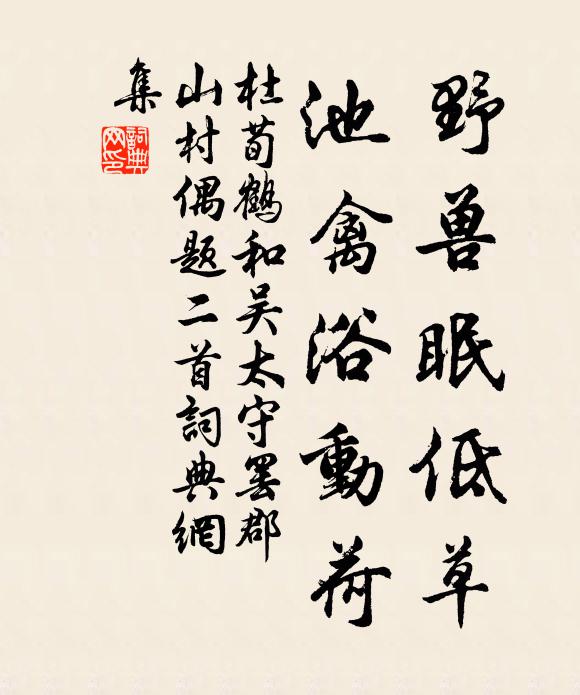 野兽眠低草
池禽浴動荷
杜荀鶴和吴太守罢郡
山村偶题二首詞典網
集
詞典網印